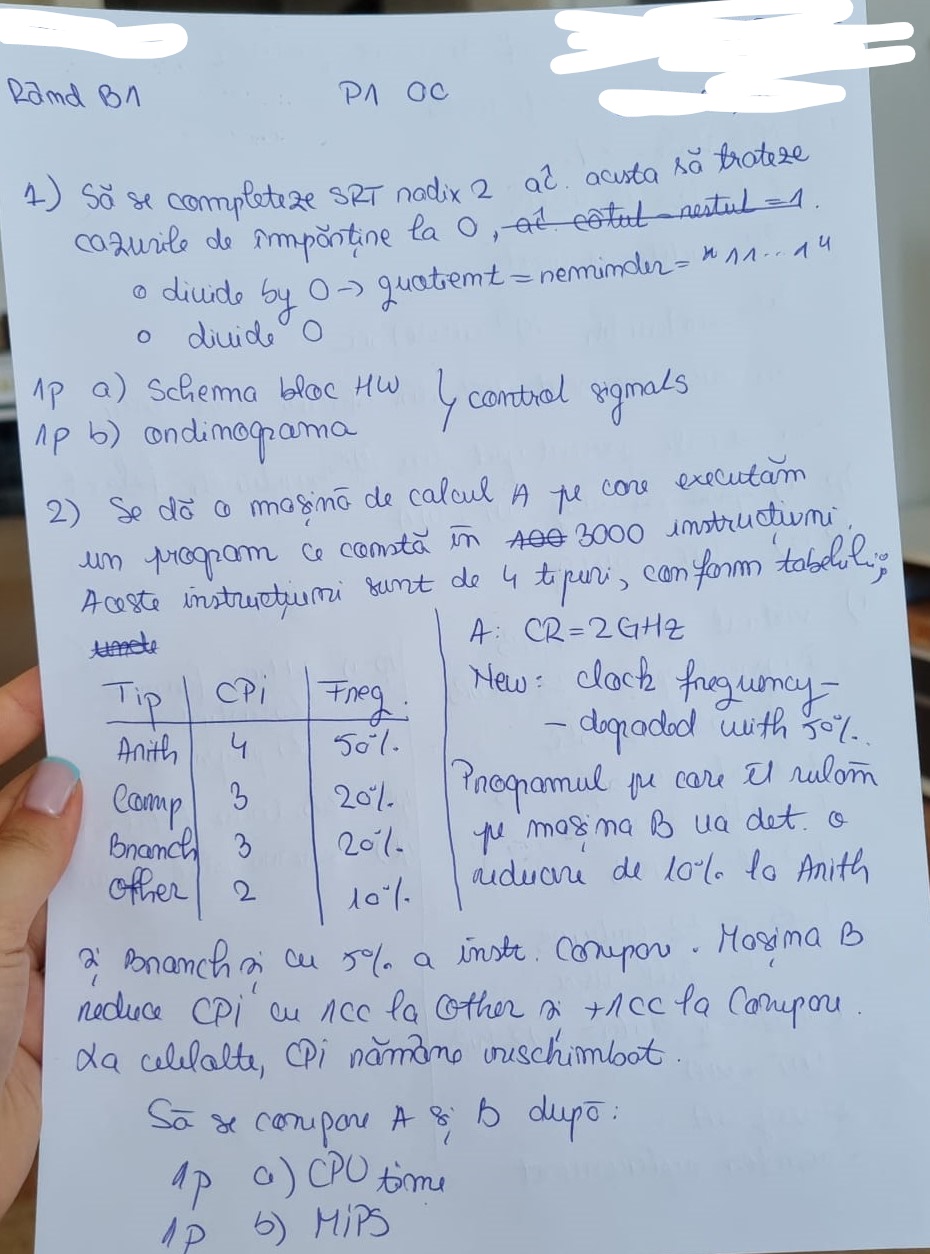 Rând B1 P1 OC
1) Să se completeze SRT radix 2 aî. acesta să trateze
cazurile de împărțire la 0, aî. câtul restul = 1.
o divide by 0 → quotient = reminder = "11...1"
o divide 0
1p a) Schema bloc HW } control signals
1p b) ordinograma
2) Se dă o mașină de calcul A pe care executăm
un program ce constă în 100 3000 instrucțiuni.
Aceste instrucțiuni sunt de 4 tipuri, conform tabelului;
unde
Tip CPi Freq.
Arith 4 50%.
Comp 3 20%.
Branch 3 20%.
Other 2 10%.
A: CR = 2GHz
New: clock frequency -
- degraded with 50%.
Programul pe care îl rulăm
pe mașina B va det. o
reducere de 10% la Arith
și Branch și cu 5% a instr. Compare. Mașina B
reduce CPi cu 1CC la Other și +1CC la Compare.
La celelalte, CPi rămâne neschimbat.
Să se compare A și B după:
1p a) CPU time
1p b) MiPS